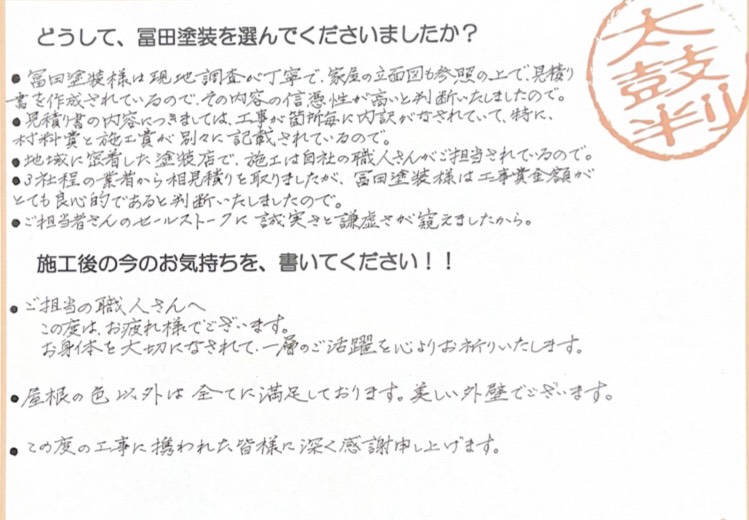 どうして、冨田塗装を選んでくださいましたか？
太鼓判
●冨田塗装様は現地調査が丁寧で、家屋の立面図も参照の上で、見積り
書を作成されているので、その内容の信憑性が高いと判断いたしましたので。
●見積り書の内容につきましては、工事が箇所毎に内訳がなされていて、特に、
材料賞と施工賞が別々に記載されているので。
●地域に密着した塗装店で、施工は自社の職人さんがご担当されているので。
●3社程の業者から相見積りを取りましたが、冨田塗装様は工事賞金額が
とても良心的であると判断いたしましたので。
●ご担当者さんのセールストークに誠実さと謙虚さが窺えましたから。
施工後の今のお気持ちを、書いてください！！
●ご担当の職人さんへ
この度は、お疲れ様でございます。
お身体を大切になされて、一層のご活躍を心よりお祈りいたします。
●屋根の色以外は全てに満足しております。美しい外壁でございます。
●この度の工事に携われた皆様に深く感謝申し上げます。